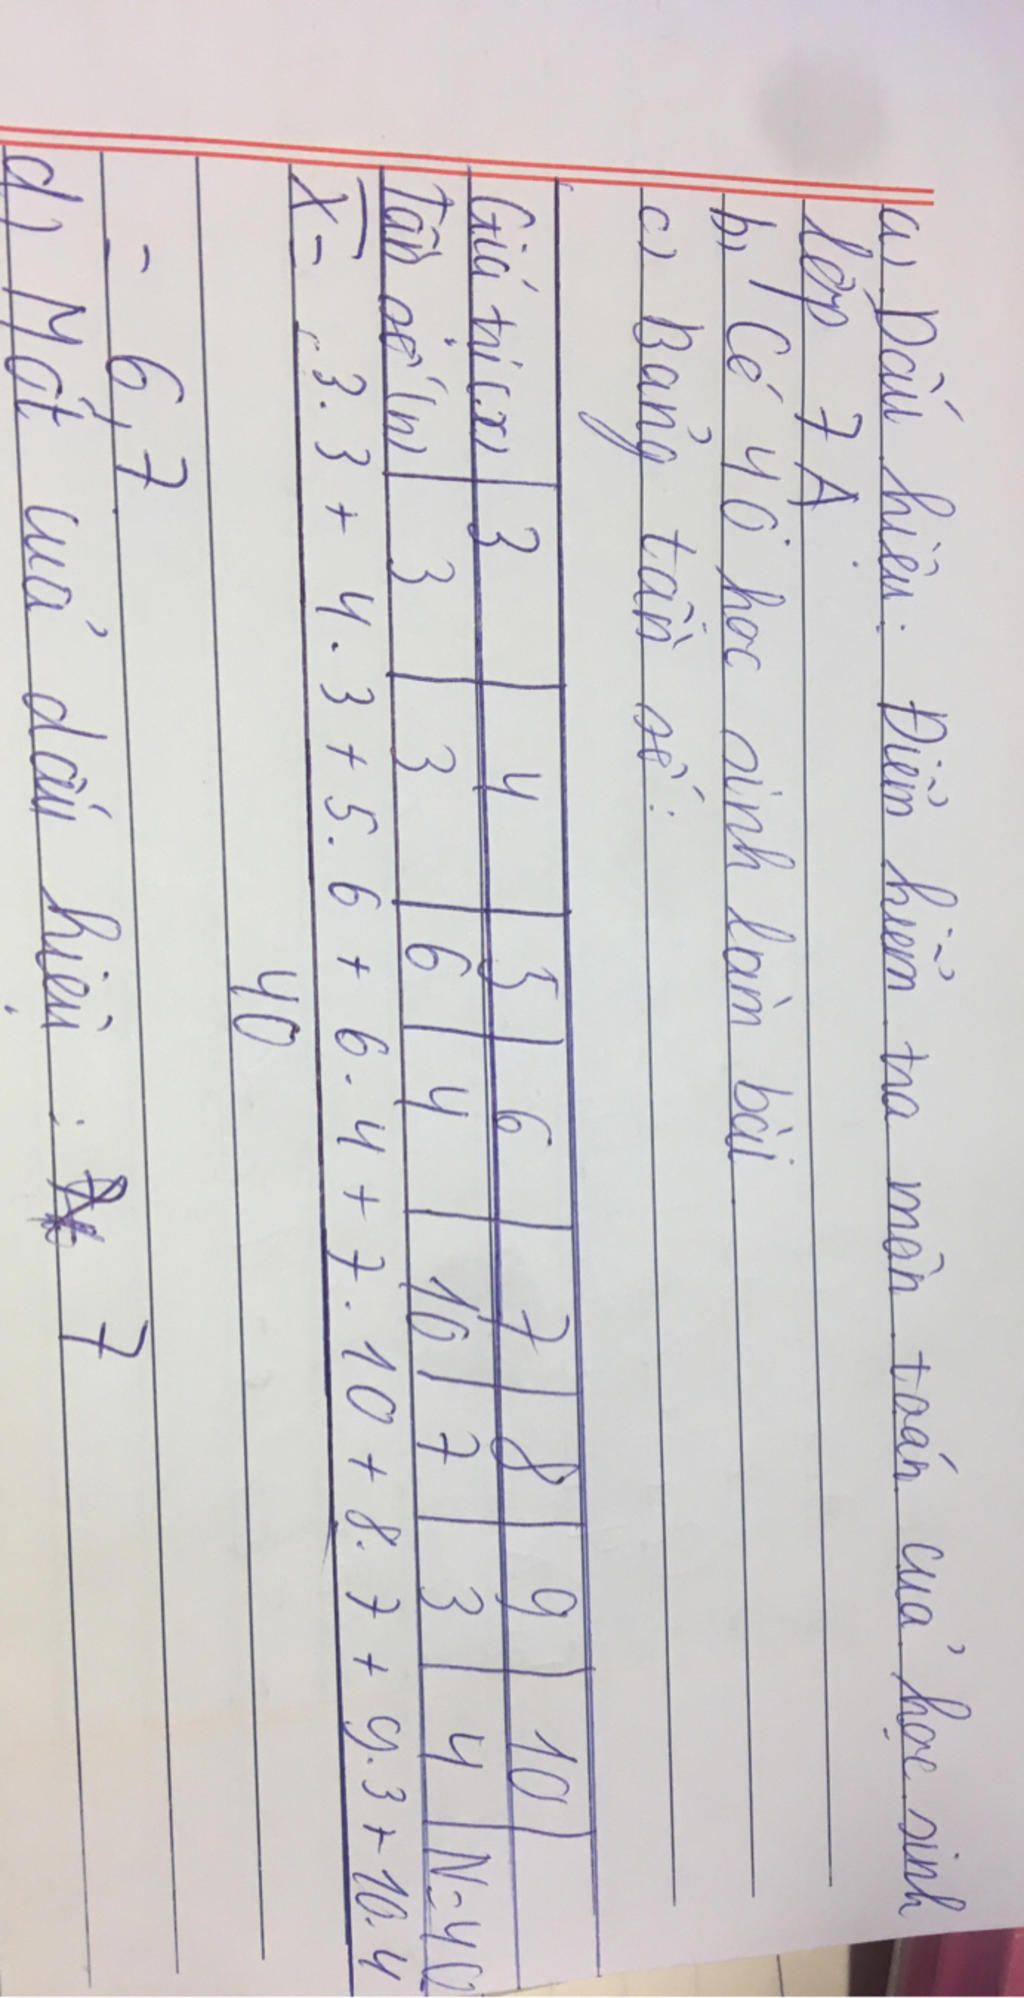 a) Dấu hiệu: Điểm kiểm tra môn toán của học sinh
lớp 7A.
b) Có 40 học sinh làm bài
c) Bảng tần số:
Giá trị (x) 3 4 5 6 7 8 9 10
Tần số (n) 3 3 6 4 10 7 3 4 N=40
X = 3.3 + 4.3 + 5.6 + 6.4 + 7.10 + 8.7 + 9.3 + 10.4
40
= 6,7
d) Mốt của dấu hiệu: 7